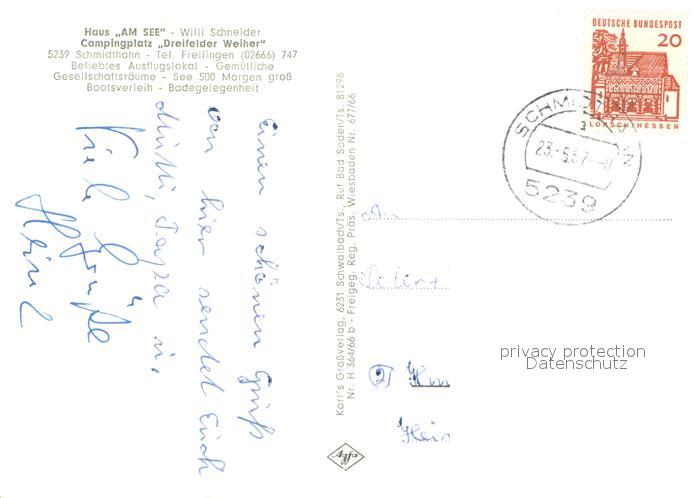 Haus „AM SEE" - Willi Schneider
Campingplatz „Dreifelder Weiher"
5239 Schmidthahn - Tel. Freilingen (02666) 747
Beliebtes Ausflugslokal - Gemütliche
Gesellschaftsräume - See 500 Morgen groß
Bootsverleih - Badegelegenheit
Einen schönen Gruß
von hier sendet Euch
Mutti, Papa u.
Viele Grüße
Korr's Großverlag, 6231 Schwalbach/Ts., Ruf Bad Soden/Ts. 81296
Nr. H 364/66 b - Freigeg. Reg. Präs. Wiesbaden Nr. 677/66
Agfa
DEUTSCHE BUNDESPOST
20
LORSCH/HESSEN
5239
privacy protection
Datenschutz